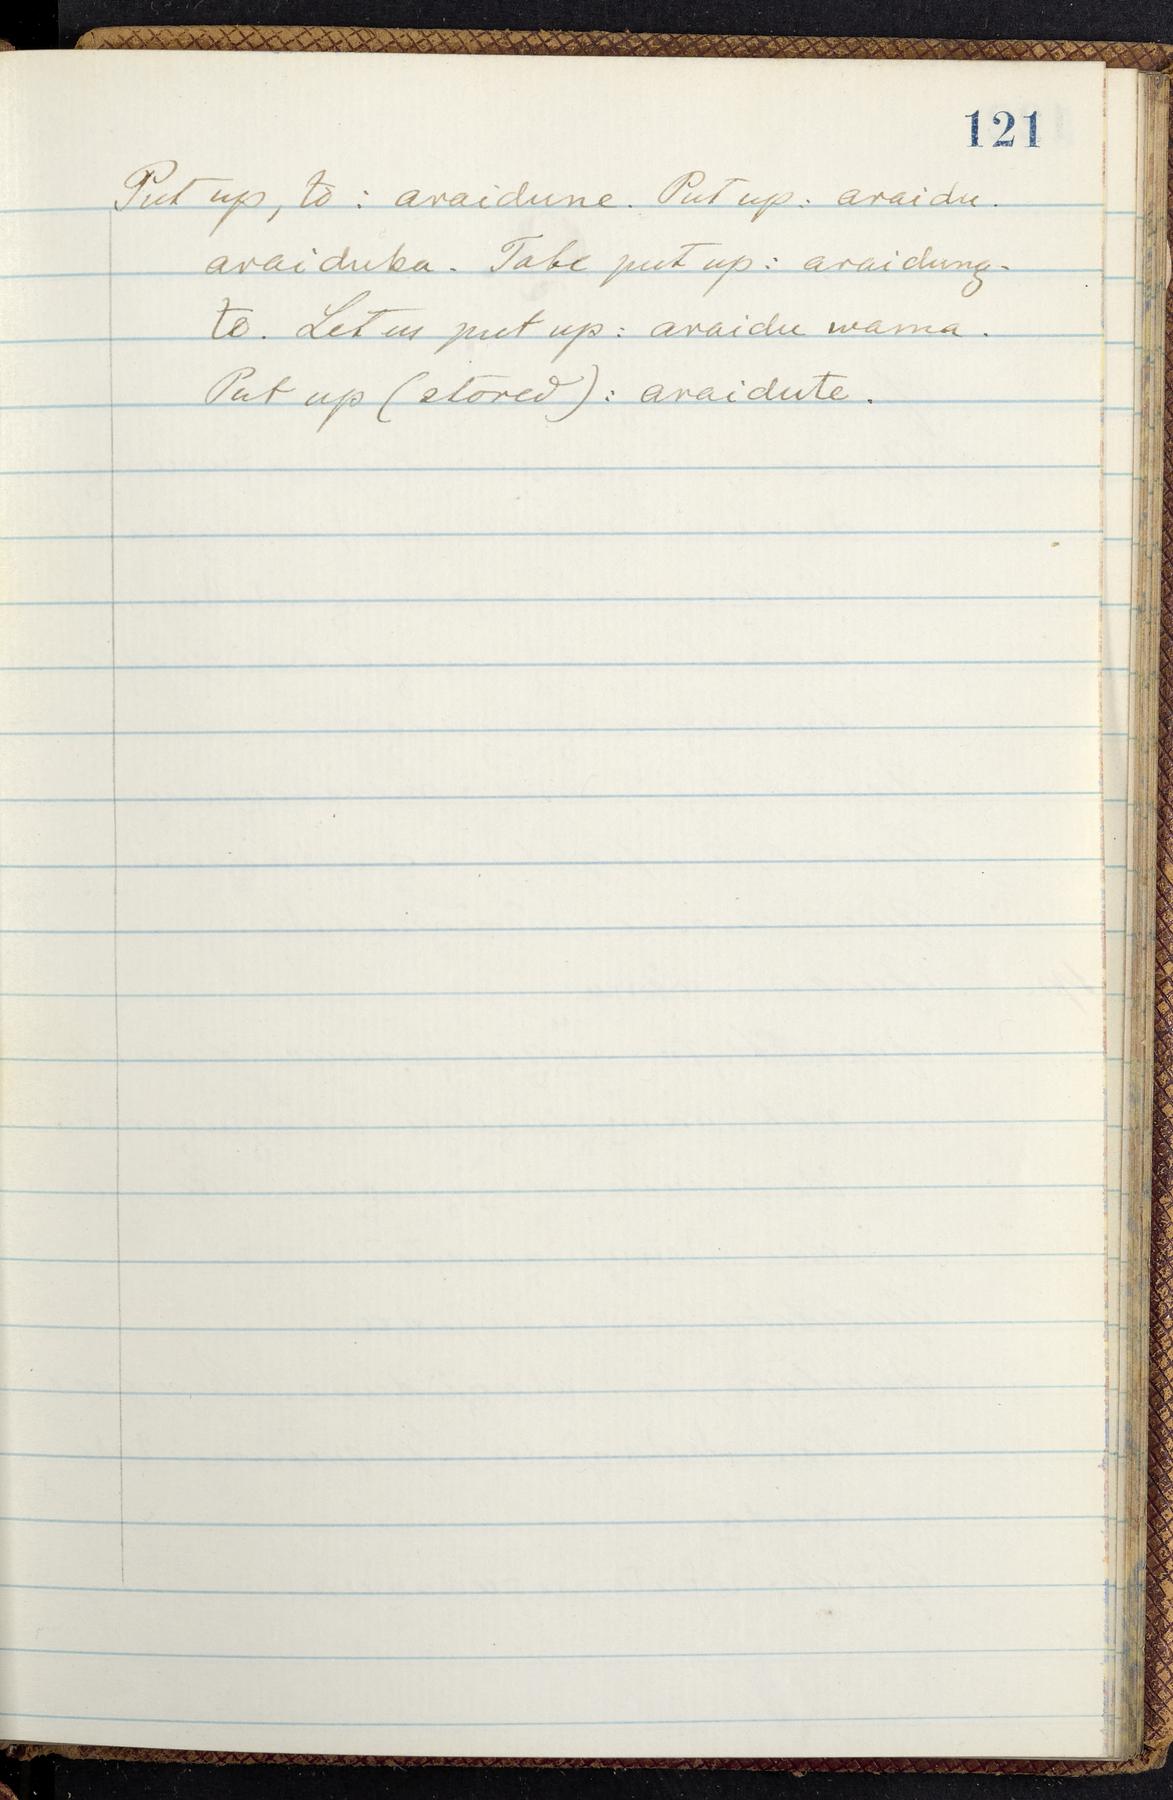 121
Put up, to : araidune. Put up: araidu.
araiduka. Take put up: araidung-
te. Let us put up: araidu wama.
Put up (stored): araidute.